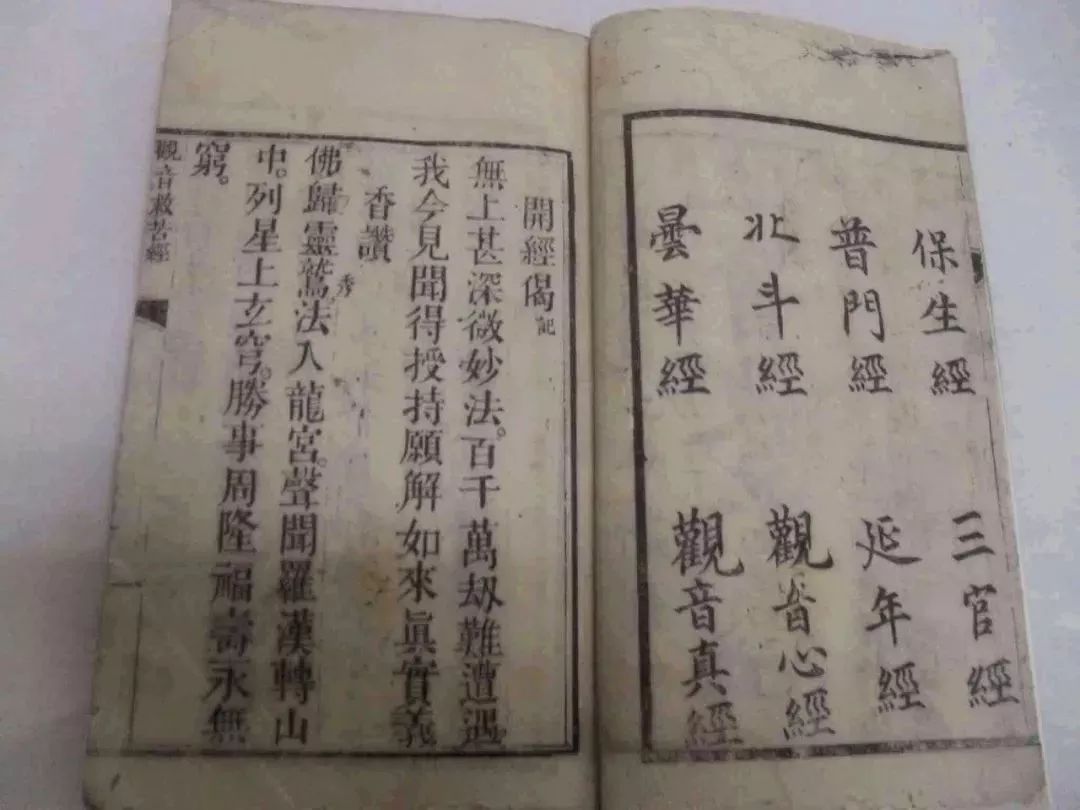 保生經 三官經
普門經 延年經
北斗經 觀音心經
曇華經 觀音真經
開經偈 記
無上甚深微妙法。百千萬劫難遭遇
我今見聞得授持願解如來眞實義
香讚
佛歸靈鷲法入龍宮。聲聞羅漢轉山
中。列星上玄穹。勝事周隆福壽永無
窮。
觀音救苦經